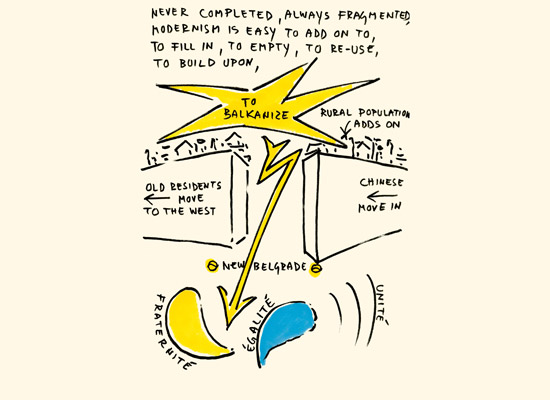 NEVER COMPLETED, ALWAYS FRAGMENTED,
MODERNISM IS EASY TO ADD ON TO,
TO FILL IN, TO EMPTY, TO RE-USE,
TO BUILD UPON,
TO
BALKANIZE
RURAL POPULATION
ADDS ON
OLD RESIDENTS
MOVE
TO THE WEST
CHINESE
MOVE IN
NEW BELGRADE
FRATERNITÉ
ÉGALITÉ
UNITÉ